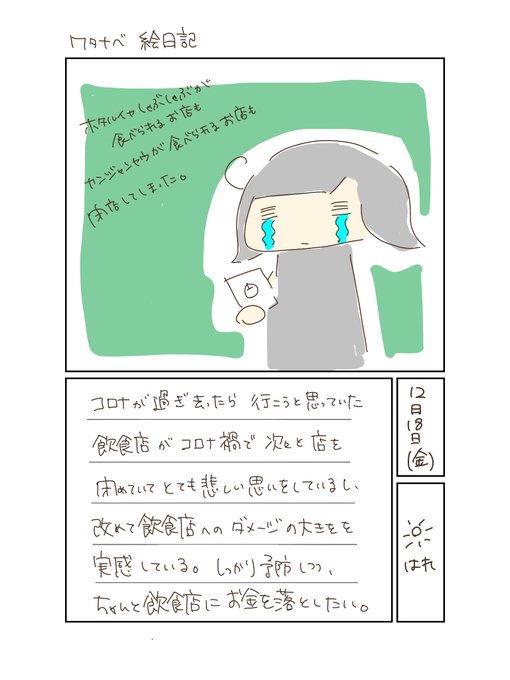 ワタナベ 絵日記
ホタルイカしゃぶしゃぶが
食べられるお店も
カンジャンセウが食べられるお店も
閉店してしまった。
コロナが過ぎ去ったら 行こうと思っていた
飲食店が コロナ禍で 次々と 店を
閉めていて とても悲しい思いをしているし、
改めて飲食店への ダメージの大きさを
実感している。 しっかり予防しつつ、
ちゃんと飲食店に お金を落としたい。
12日18日(金)
はれ